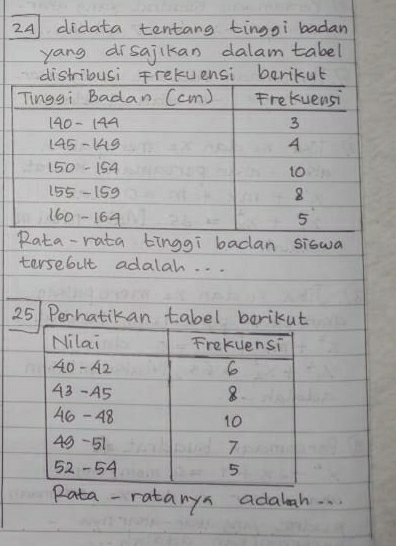 24 didata tentang tinggi badan
yang disajikan dalam tabel
distribusi Frekuensi berikut
Tinggi Badan (cm) Frekuensi
140 - 144 3
145 - 149 4
150 - 154 10
155 - 159 8
160 - 164 5
Rata - rata tinggi badan siswa
tersebut adalah ...
25 Perhatikan tabel berikut
Nilai Frekuensi
40 - 42 6
43 - 45 8
46 - 48 10
49 - 51 7
52 - 54 5
Rata - ratanya adalah ...